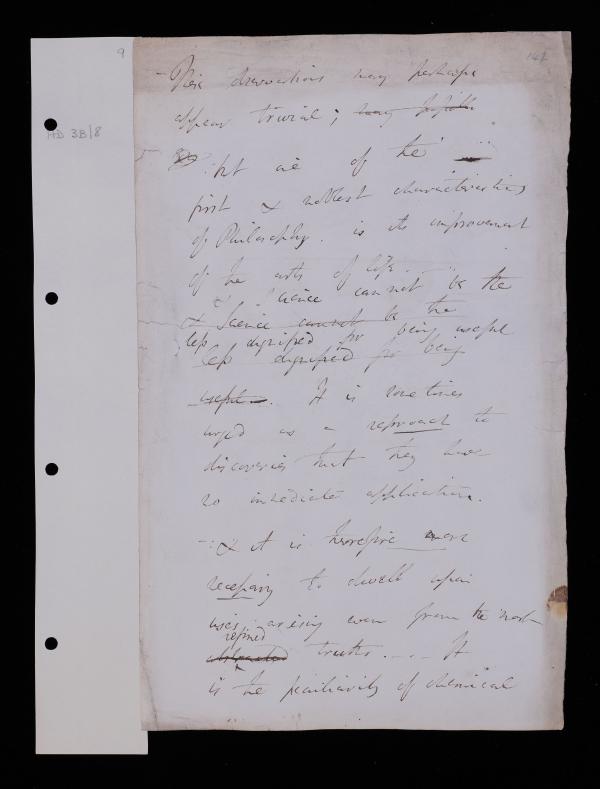 9
141
HD 3B/8
- These observations may perhaps
appear trivial; may
: but one of the
first & noblest characteristics
of Philosophy. is its improvement
of the arts of life.
& Science cannot be the
& Science cannot be the
less dignified for being useful
less dignified for being
useful. It is sometimes
urged as a reproach to
discoveries that they have
no immediate application.
-: & it is therefore more
necessary to dwell upon
uses arising even from the most
refined
abstracted truths. _ . _ It
is the peculiarity of chemical